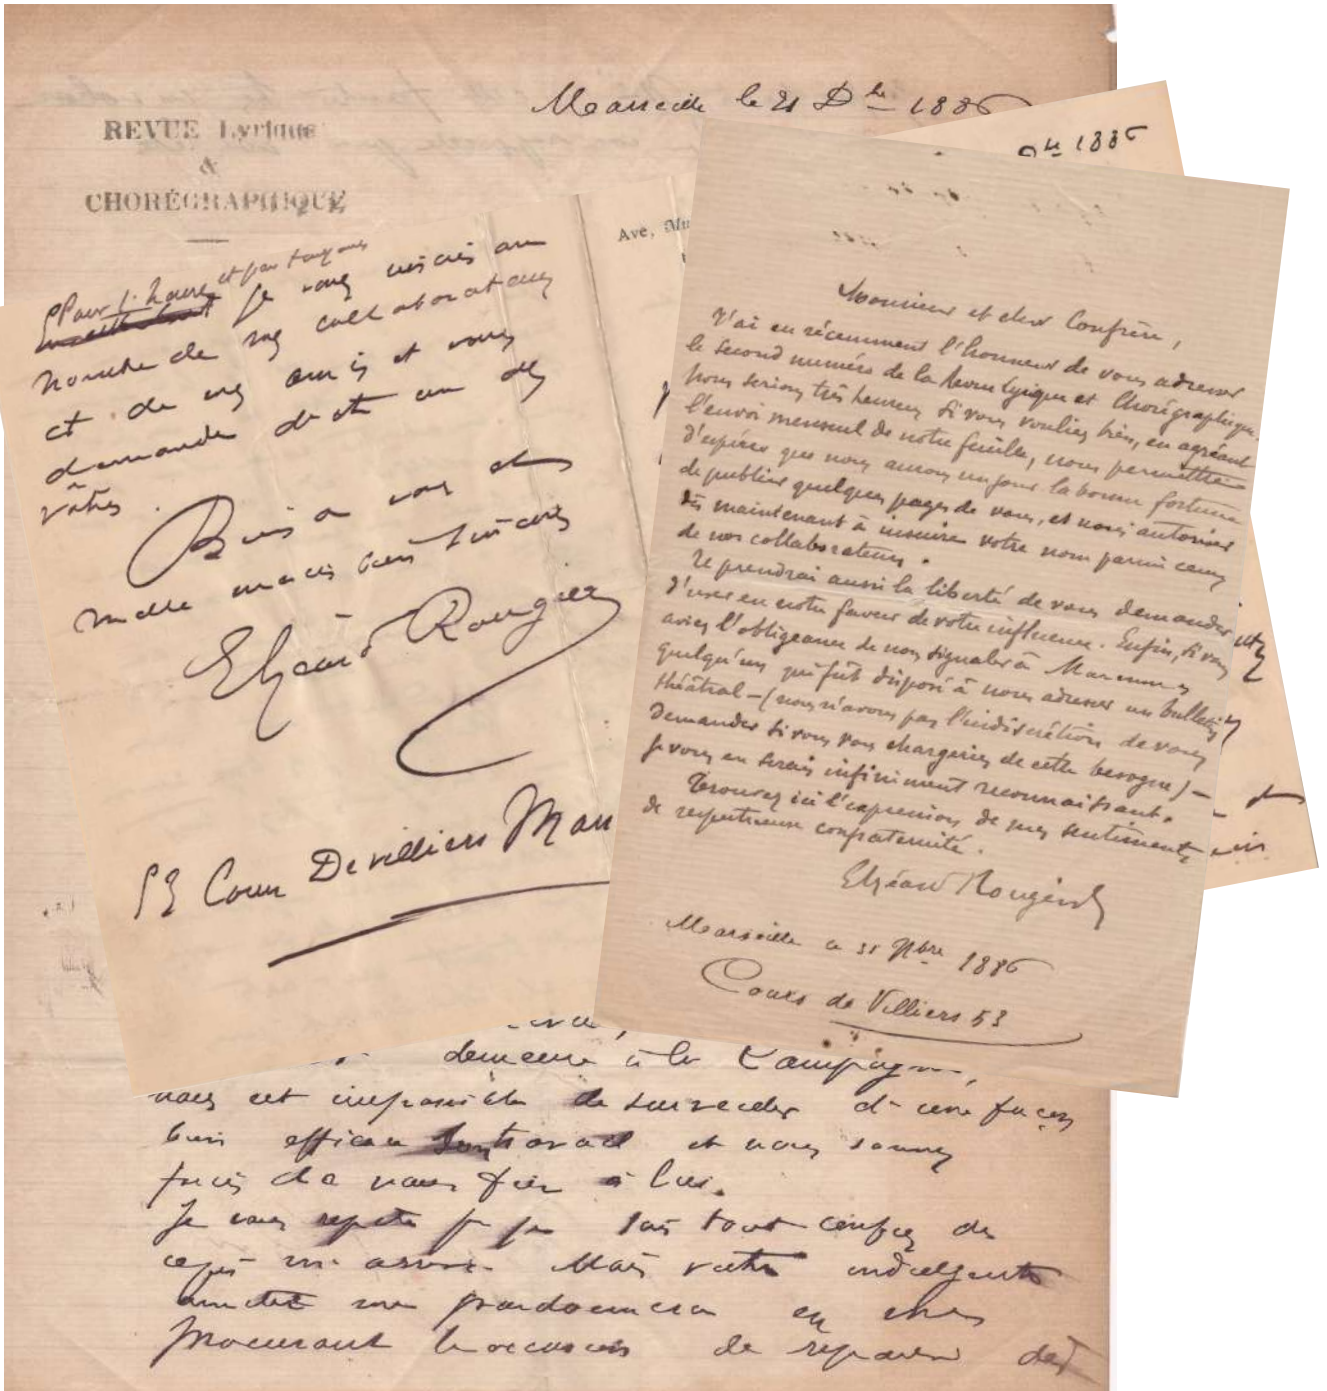 Marseille le 21 Dbre 1886
REVUE Lyrique
&
CHORÉGRAPHIQUE
bre 1886
Ave, Mu
Pour l'heure et pour toujours
je vous inscris au
nombre de mes collaborateurs
et de mes amis et vous
demande d'être un des
vôtres.
Bien à vous et
mille mercis bien sincères
Elzéard Rougier
53 Cours Devilliers Mar
Monsieur et cher Confrère,
J'ai eu récemment l'honneur de vous adresser
le second numéro de la Revue Lyrique et Chorégraphique.
Nous serions très heureux si vous vouliez bien, en agréant
l'envoi mensuel de notre feuille, nous permettre
d'espérer que nous aurons un jour la bonne fortune
de publier quelques pages de vous, et nous autoriser
dès maintenant à inscrire votre nom parmi ceux
de nos collaborateurs.
Je prendrai aussi la liberté de vous demander
d'user en notre faveur de votre influence. Enfin, si vous
aviez l'obligeance de nous signaler à Marennes
quelqu'un qui fût disposé à nous adresser un bulletin
théâtral – (nous n'avons pas l'indiscrétion de vous
demander si vous vous chargeriez de cette besogne) –
je vous en serais infiniment reconnaissant.
Trouvez ici l'expression de mes sentiments
de respectueuse confraternité.
Elzéard Rougier
Marseille ce 31 Nbre 1886
Cours de Villiers 53
demeure à la Campagne,
nous est impossible de surveiller d'une façon
bien efficace son travail et nous sommes
forcés de nous fier à lui.
Je vous répète que je suis tout confus de
ce qui m'arrive. Mais votre indulgente
amitié me pardonnera en me
procurant l'occasion de réparer